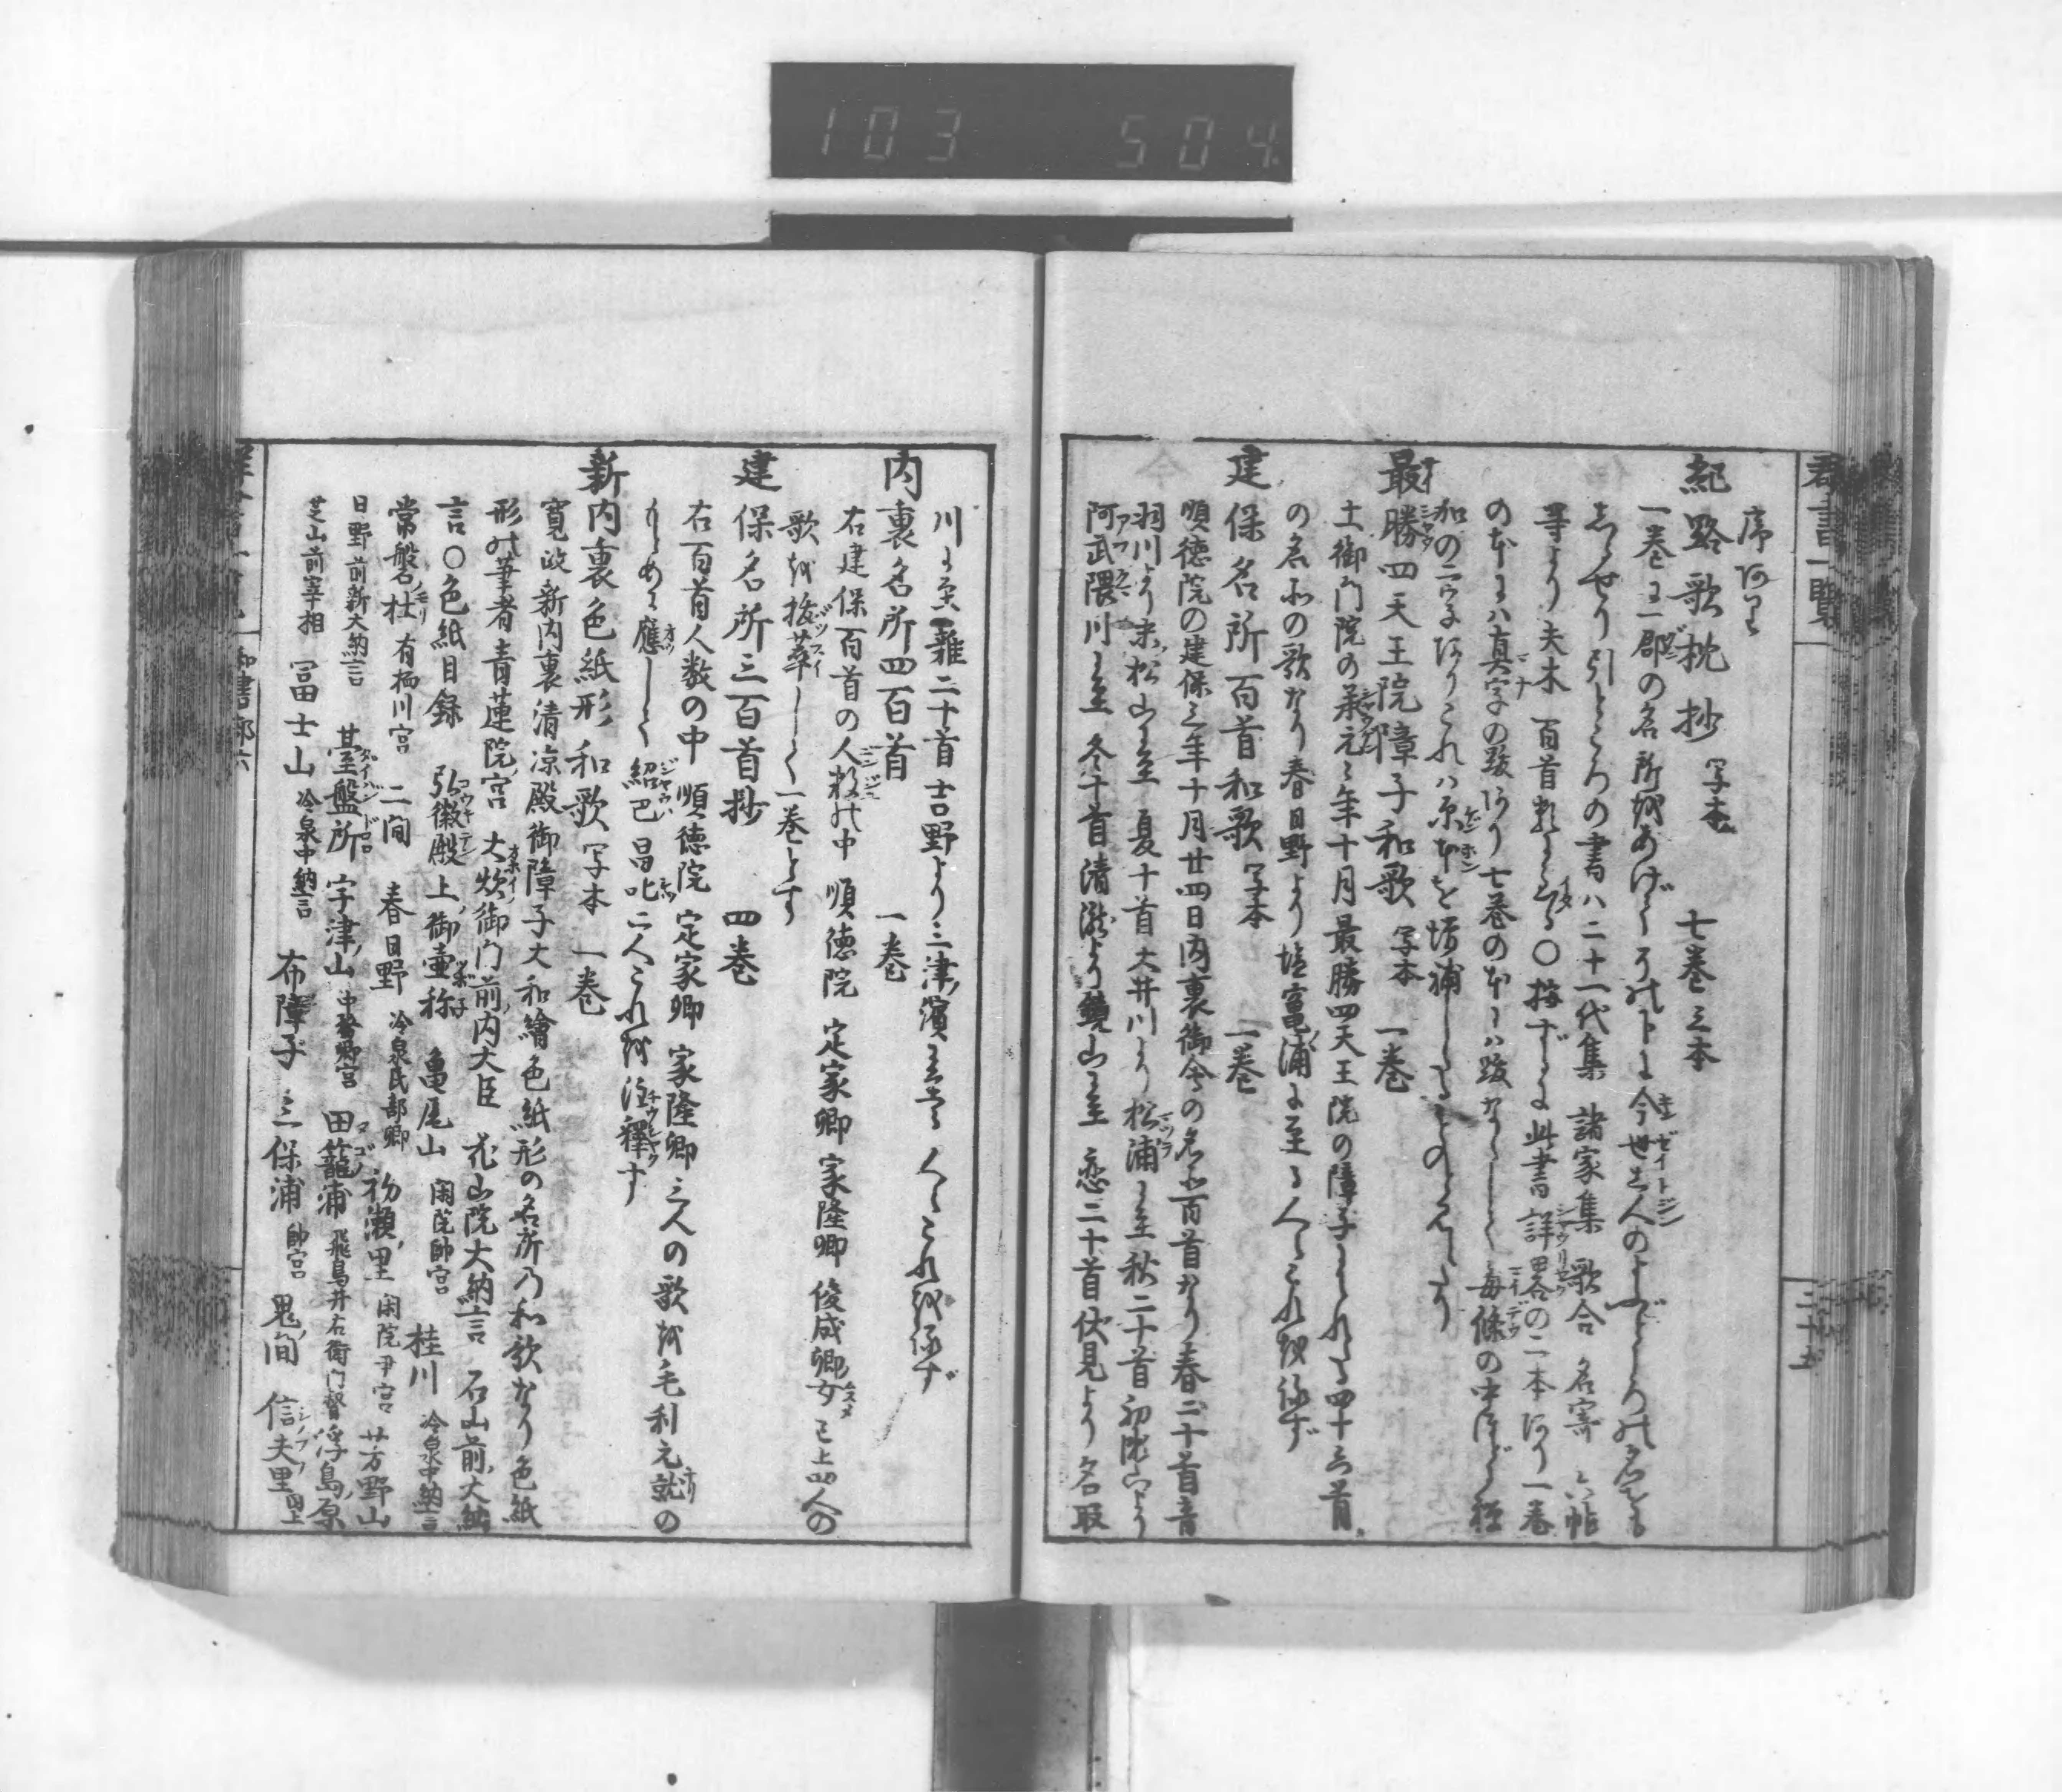 103 504
群書一覧
三十五
序アリ
紀路歌枕抄 写本 七巻 三本
一巻に一郡の名所をあげてその下に今世土人のよぶところの名をも
しるせり引ところの書ハ二十一代集 諸家集 歌合 名寄 六帖
等より夫木 百首類にいたる〇按ずるに此書詳畧の二本あり一巻
のものにハ真字の跋あり七巻のものにハ跋なくして毎條の中ほどに
加の一字ありこれハ原本を増補したるものと見えたり
最勝四天王院障子和歌 写本 一巻
土御門院の承元元年十月最勝四天王院の障子にかかれたる四十六首
の名所の歌なり春日野より塩竈浦に至る人々これを詠ず
建保名所百首和歌 写本 一巻
順徳院の建保三年十月廿四日内裏御会の名所百首なり春二十首音
羽川より末松山に至 夏十首大井川より松浦に至秋二十首初瀬山より
阿武隈川に至 冬十首清瀧より鏡山に至 恋二十首伏見より名取
川に至 雜二十首吉野より三津濱に至る 人々これを詠ず
内裏名所四百首 一巻
右建保百首の人数の中 順徳院 定家卿 家隆卿 俊成卿女 已上四人の
歌を抜萃して一巻とす
建保名所三百首抄 四巻
右百首人数の中 順徳院 定家卿 家隆卿 三人の歌を毛利元就の
もとめに應して紹巴 昌叱 二人これを注釋す
新内裏色紙形和歌 写本 一巻
寛政新内裏清凉殿御障子大和繪色紙形の名所乃和歌なり色紙
形の筆者青蓮院宮 大炊御門前内大臣 花山院大納言 石山前大納
言〇色紙目録 弘徽殿上御壷称 亀尾山 閑院帥宮 桂川 冷泉中納言
常磐杜 有栖川宮 二間 春日野 冷泉民部卿 初瀬里 閑院尹宮 芳野山
日野前新大納言 台盤所 宇津山 中務卿宮 田籠浦 飛鳥井右衛門督 浮島原
芝山前宰相 冨士山 冷泉中納言 布障子 三保浦 帥宮 鬼間 信夫里 同上
群書一覧 和書部六